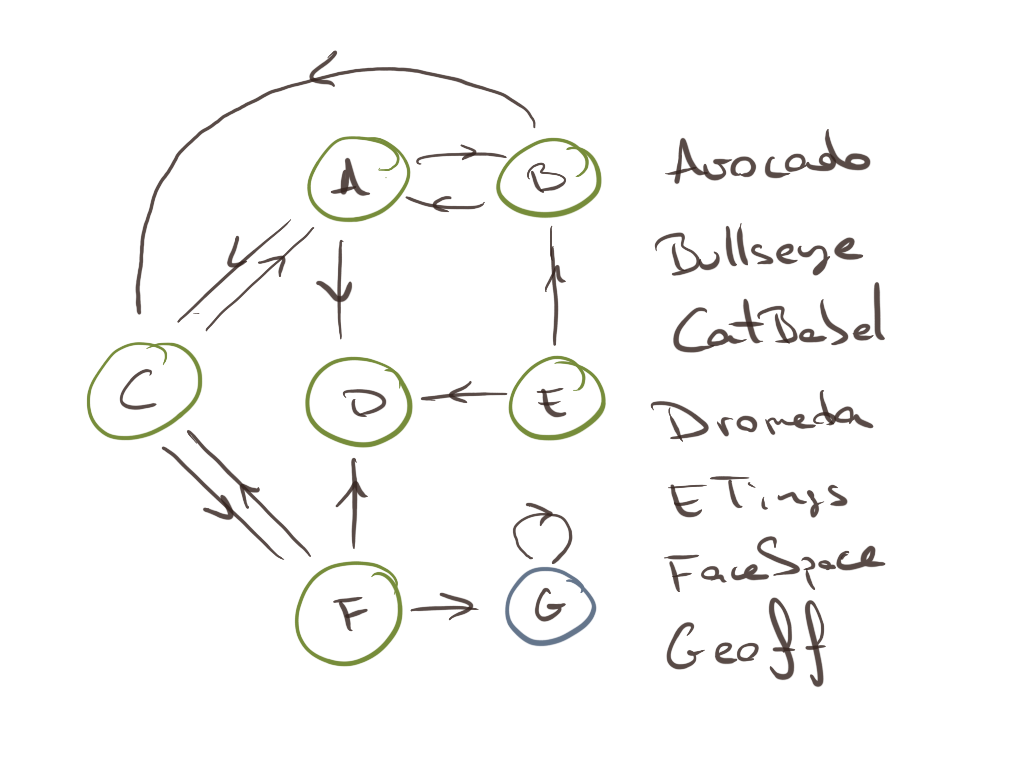 A B
C D E
F G
Avocado
Bullseye
CatBabel
Dromeda
ETings
FaceSpace
Geoff